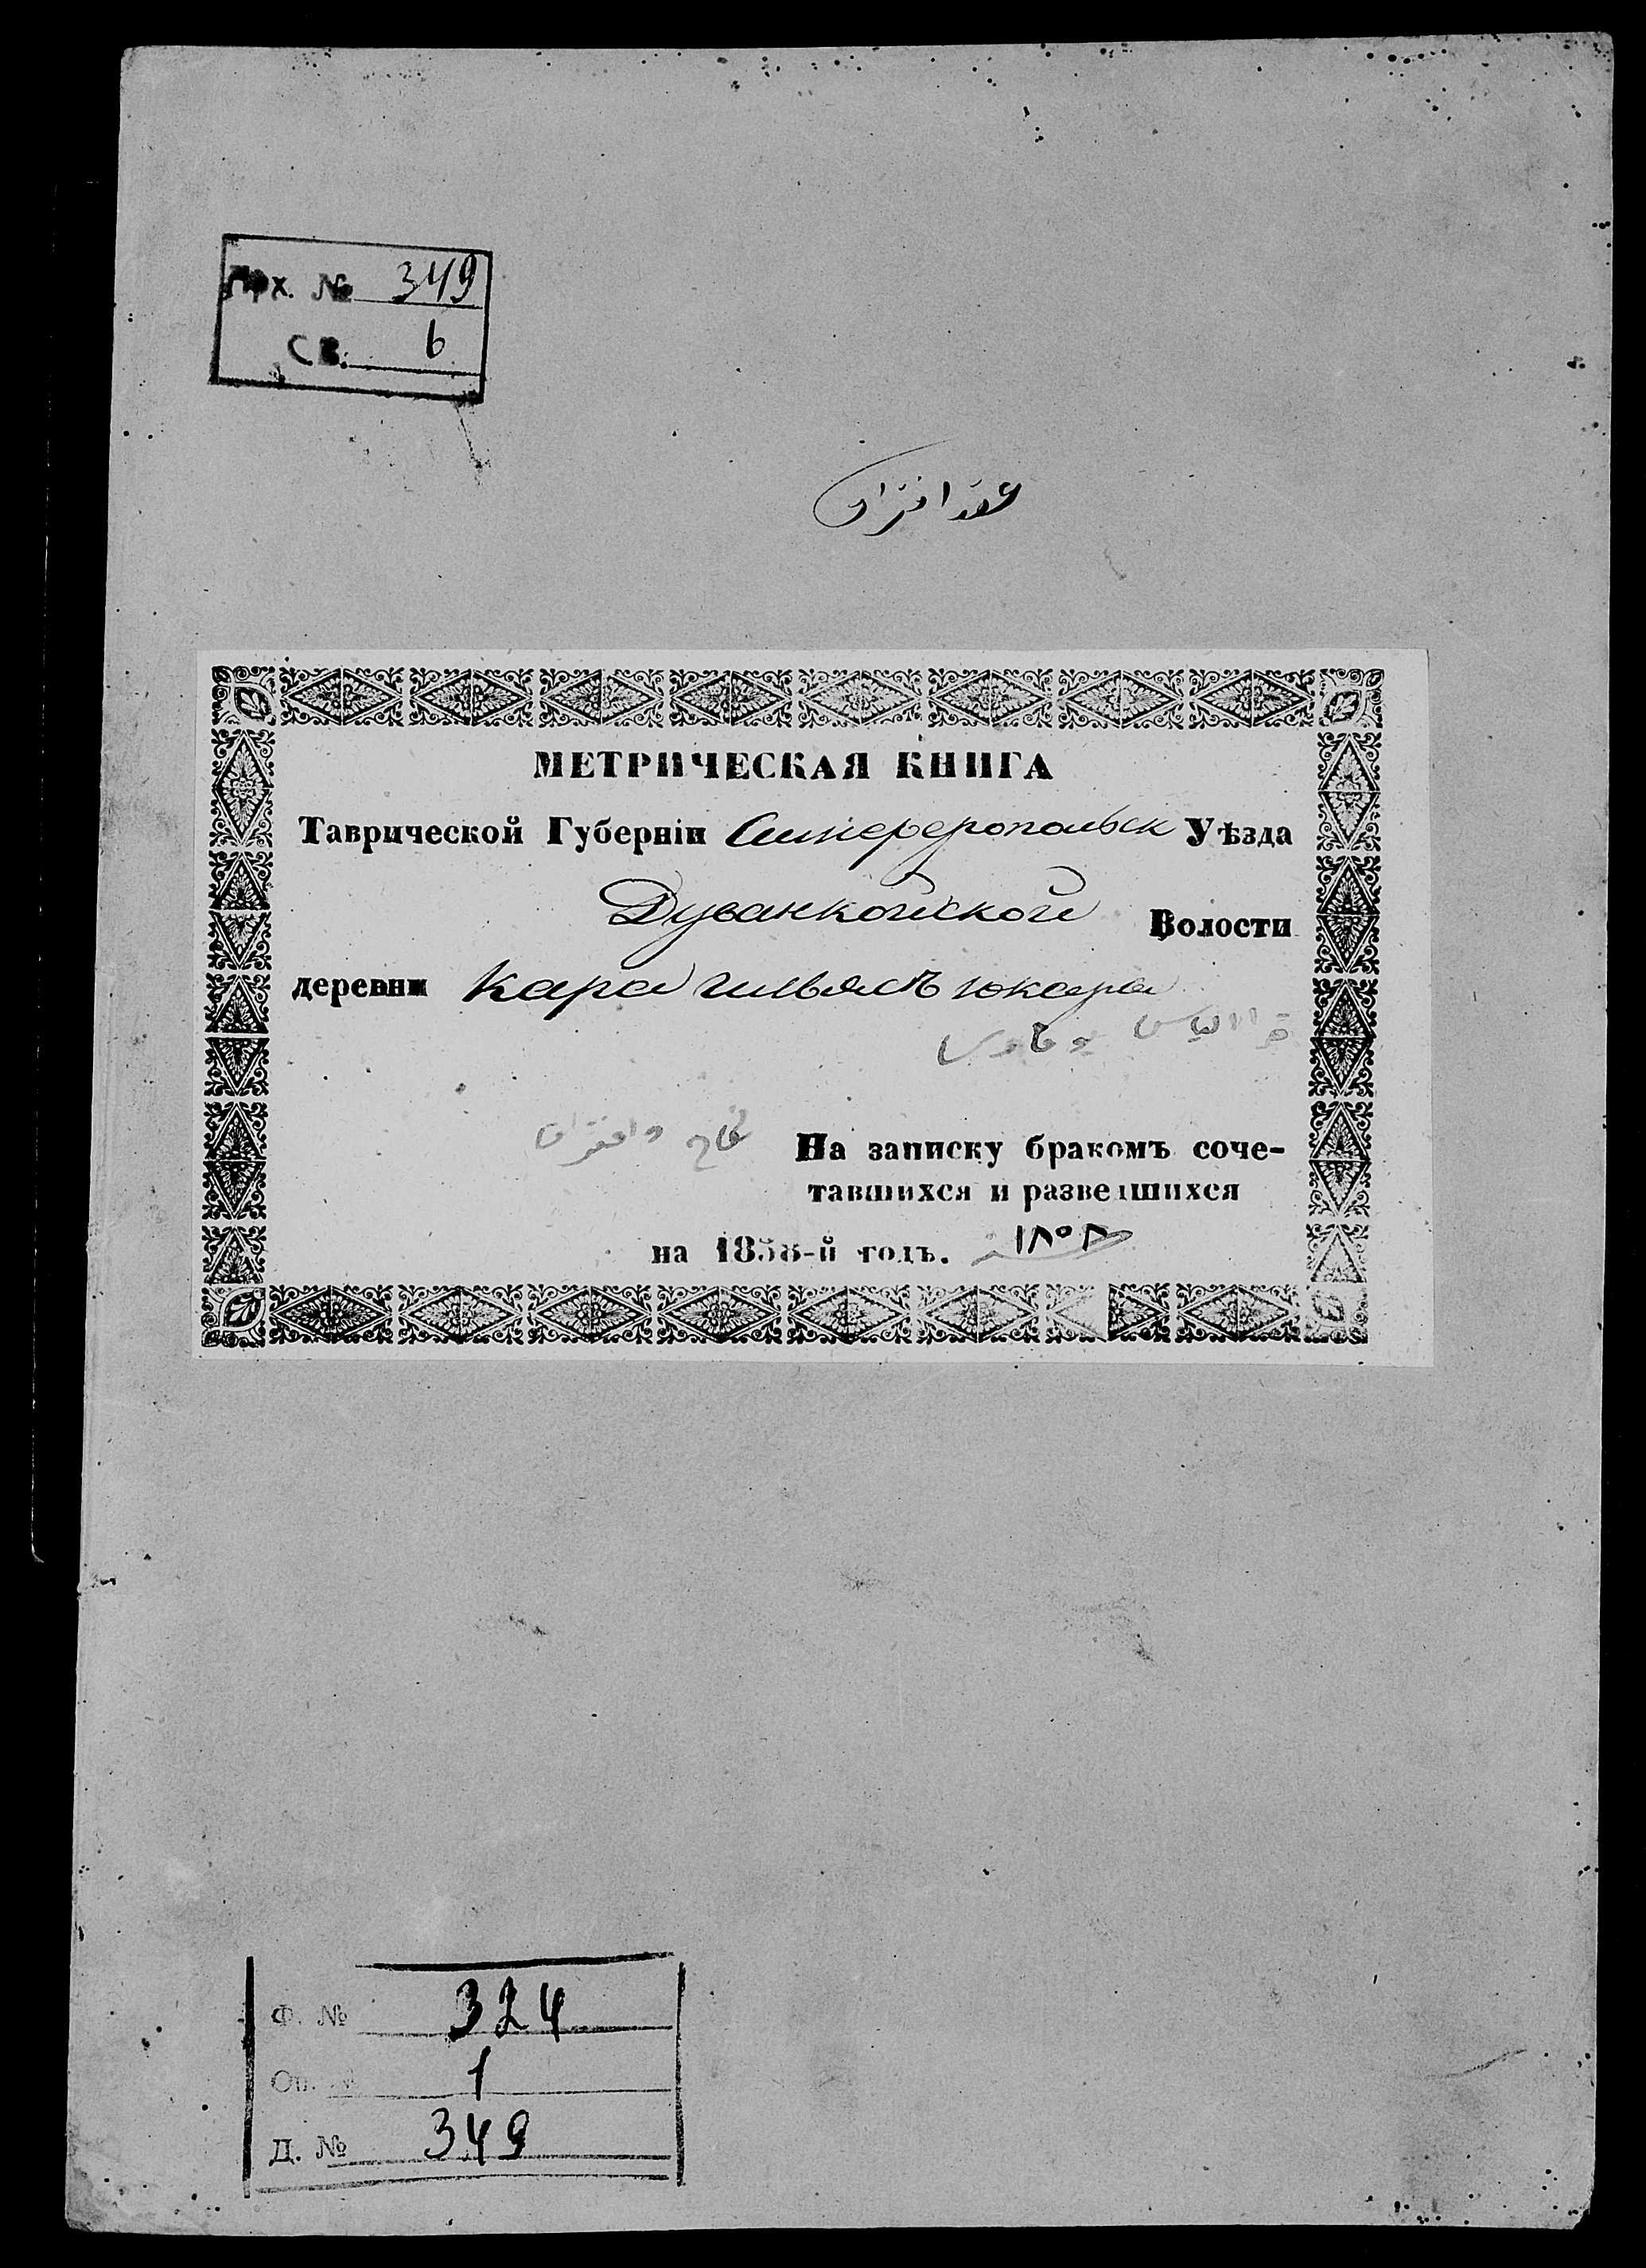 Арх. № 349
СВ. 6
عقد افتراق
МЕТРИЧЕСКАЯ КНИГА
Таврической Губерніи Симферопольск Уѣзда
Дуванкойской Волости
деревни Кара ильясъ юкара
قرا الیاس یوقاری
نكاح و افتراق На записку бракомъ соче-
тавшихся и разведшихся
на 1858-й годъ. ١٨٥٨
Ф. № 324
Оп. № 1
Д. № 349